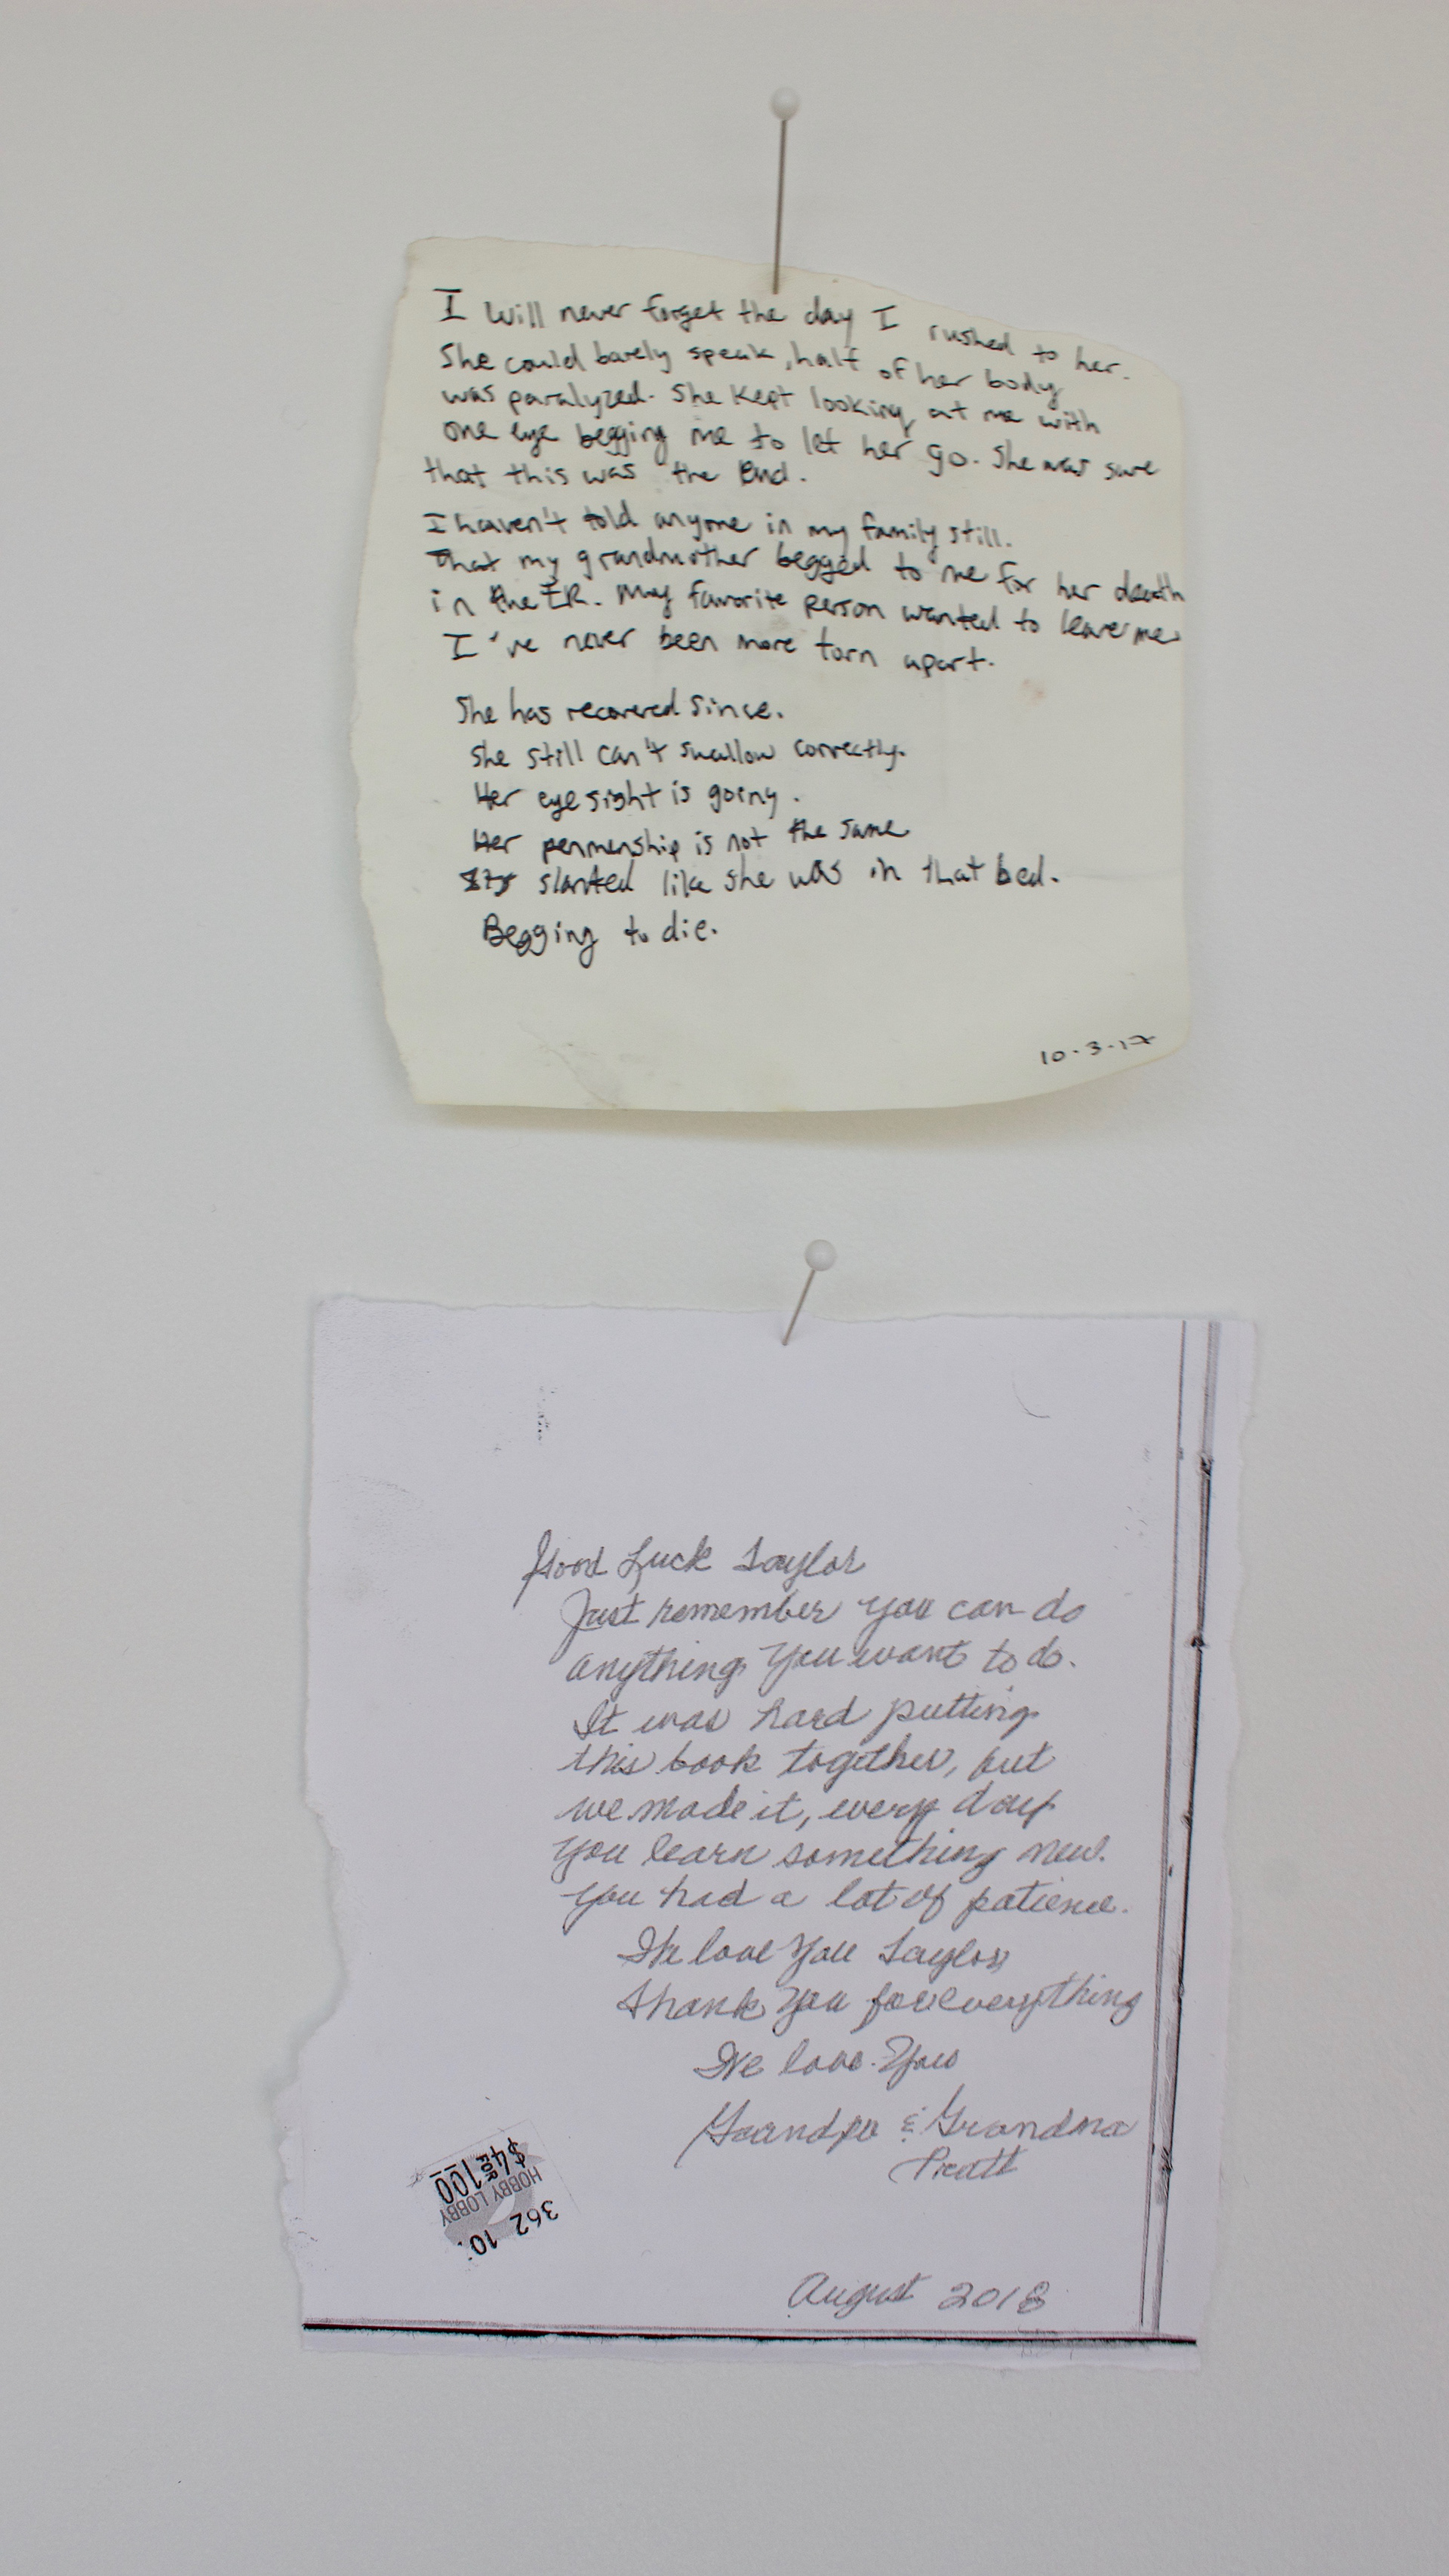 I will never forget the day I rushed to her.
She could barely speak, half of her body
was paralyzed. She kept looking at me with
one eye begging me to let her go. She was sure
that this was the end.
I haven't told anyone in my family still.
That my grandmother begged to me for her death
in the ER. My favorite person wanted to leave me.
I've never been more torn apart.
She has recovered since.
She still can't swallow correctly.
Her eyesight is going.
Her penmenship is not the same
slanted like she was in that bed.
Begging to die.
10-3-17
Good Luck Taylor
Just remember you can do
anything you want to do.
It was hard putting
this book together, but
we made it, every day
you learn something new.
You had a lot of patience.
We love you Taylor
Thank you for everything
We love you
Grandpa & Grandma
Pratt
$4 FOR 100
HOBBY LOBBY
362 10
August 2018